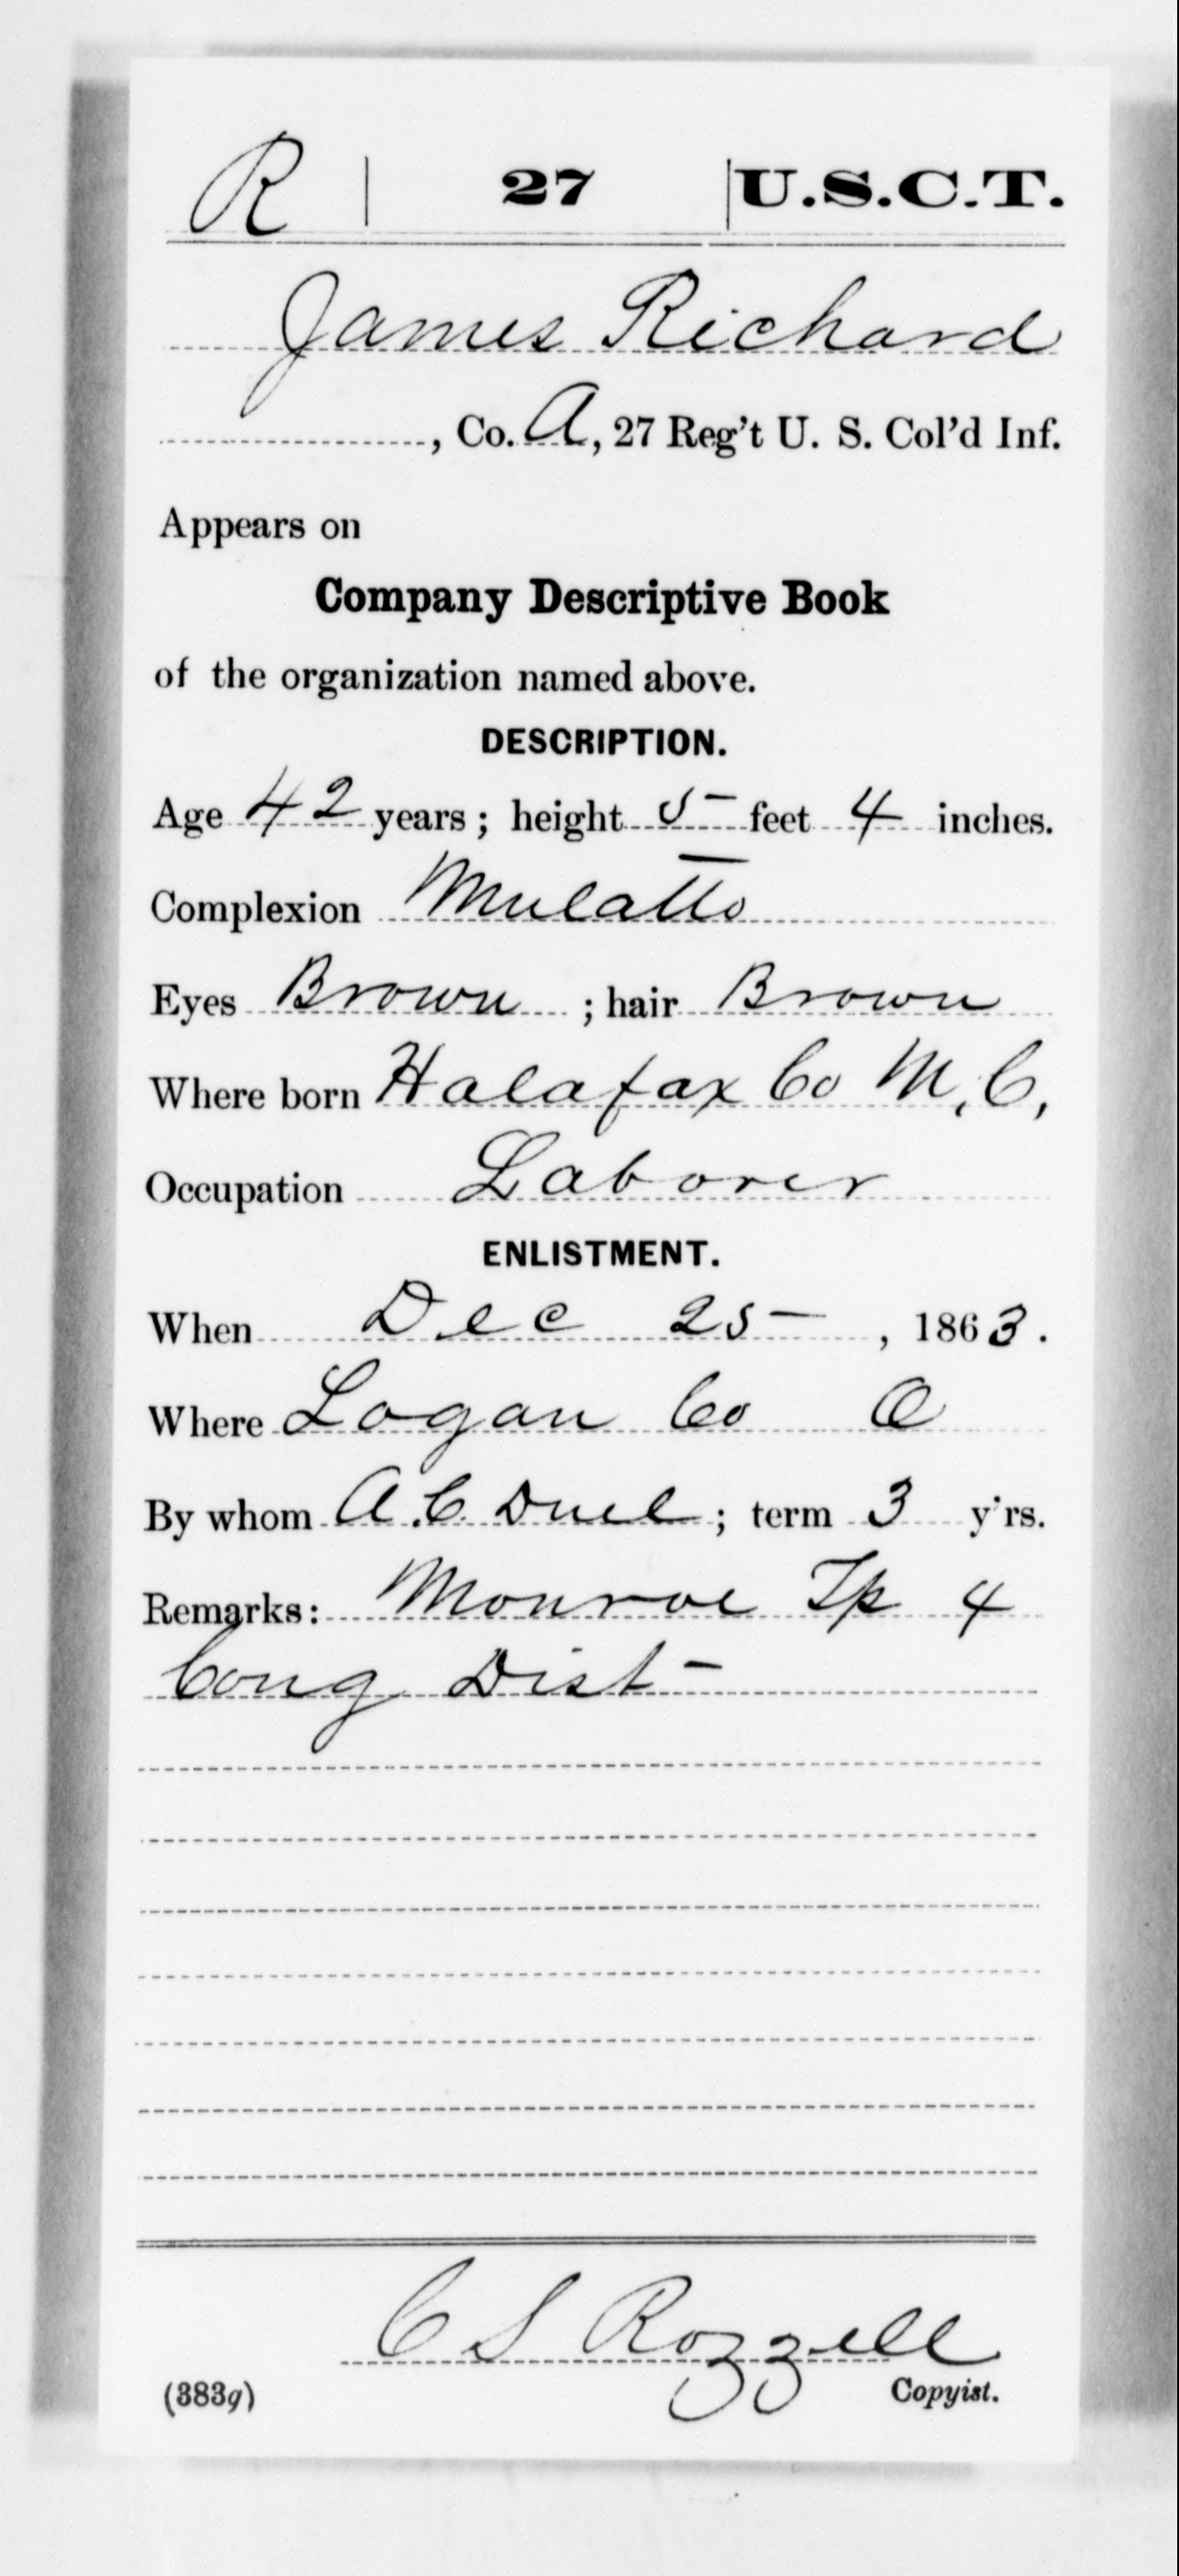 R | 27 | U.S.C.T.
James Richard
, Co. A, 27 Reg't U. S. Col'd Inf.
Appears on
Company Descriptive Book
of the organization named above.
DESCRIPTION.
Age 42 years; height 5 feet 4 inches.
Complexion Mulatto
Eyes Brown ; hair Brown
Where born Halafax Co N, C,
Occupation Laborer
ENLISTMENT.
When Dec 25 , 1863.
Where Logan Co O
By whom A. C. Duel ; term 3 y'rs.
Remarks: Monroe Tp 4
Cong Dist
C S Rozzell
(383g) Copyist.